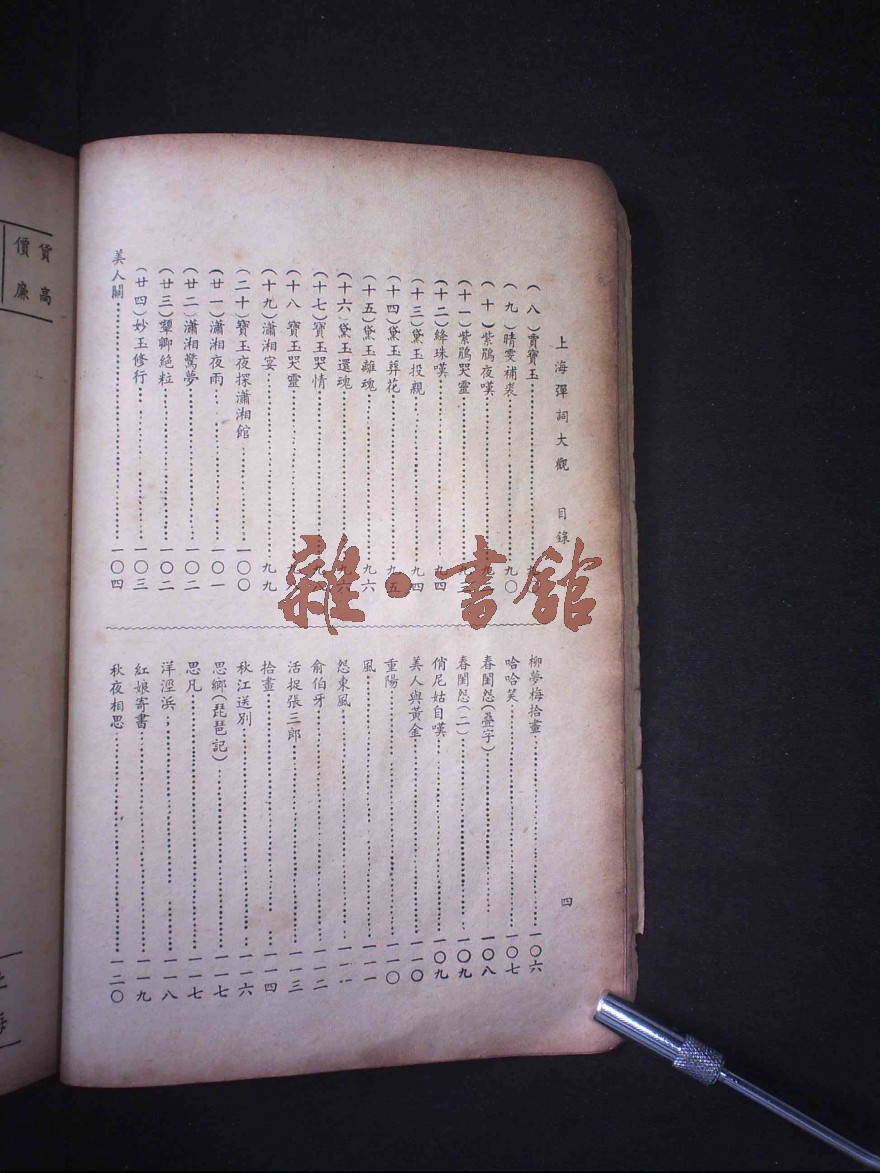 上海彈詞大觀 目錄 四
(八)賈寶玉
(九)晴雯補裘 九〇
(十)紫鵑夜嘆
(十一)紫鵑哭靈
(十二)絳珠嘆 九四
(十三)黛玉投親 九四
(十四)黛玉葬花 九五
(十五)黛玉離魂 九六
(十六)黛玉還魂 九六
(十七)寶玉哭情
(十八)寶玉哭靈
(十九)瀟湘宴 九九
(二十)寶玉夜探瀟湘館 一〇〇
(廿一)瀟湘夜雨 一〇一
(廿二)瀟湘驚夢 一〇二
(廿三)顰卿絕粒 一〇二
(廿四)妙玉修行 一〇三
美人關 一〇四
柳夢梅拾畫 一〇六
哈哈笑 一〇七
春閨怨(叠字) 一〇八
春閨怨(二) 一〇九
俏尼姑自嘆 一〇九
美人與黃金 一一〇
重陽 一一〇
風 一一一
怨東風
俞伯牙 一一二
活捉張三郎 一一三
拾畫 一一四
秋江送別 一一六
思鄉(琵琶記) 一一七
思凡 一一七
洋涇浜 一一八
紅娘寄書 一一九
秋夜相思 一二〇
貨高
價廉
雜·書館